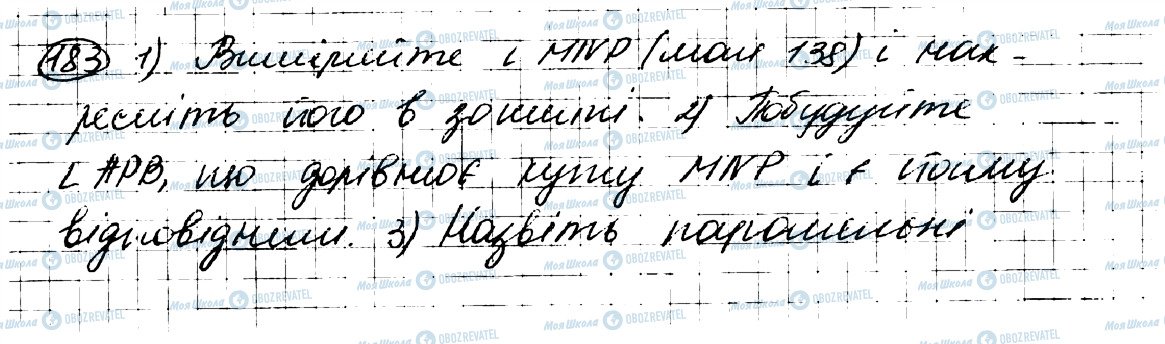 183 1) Виміряйте ∠ MNP (мал 138) і нак-
ресліть його в зошиті. 2) Побудуйте
∠ APB, що дорівнює куту MNP і є йому
відповідним. 3) Назвіть паралельні